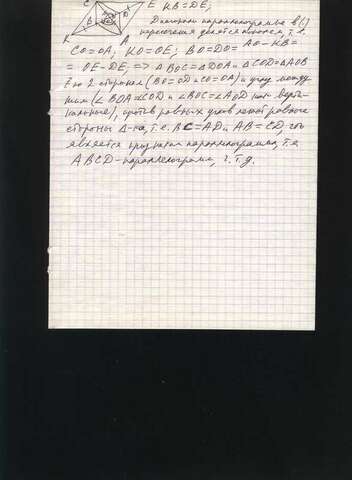 C E KB=DE;
B D
Диагонали параллелограмма в (.)
K A пересечения делятся пополам, т.е.
CO=OA; KO=OE; BO=DO= AO-KB=
= OE-DE. => ΔBOC=ΔDOA и ΔCOD=ΔAOB
по 2 сторонам (BO=OD и CO=OA) и углу между
ними (∠BOA=∠COD и ∠BOC=∠AOD как верти-
кальные), против равных углов лежат равные
стороны Δ-ка, т.е. BC=AD и AB=CD, что
является признаком параллелограмма, т.е.
ABCD-параллелограмм, ч.т.д.